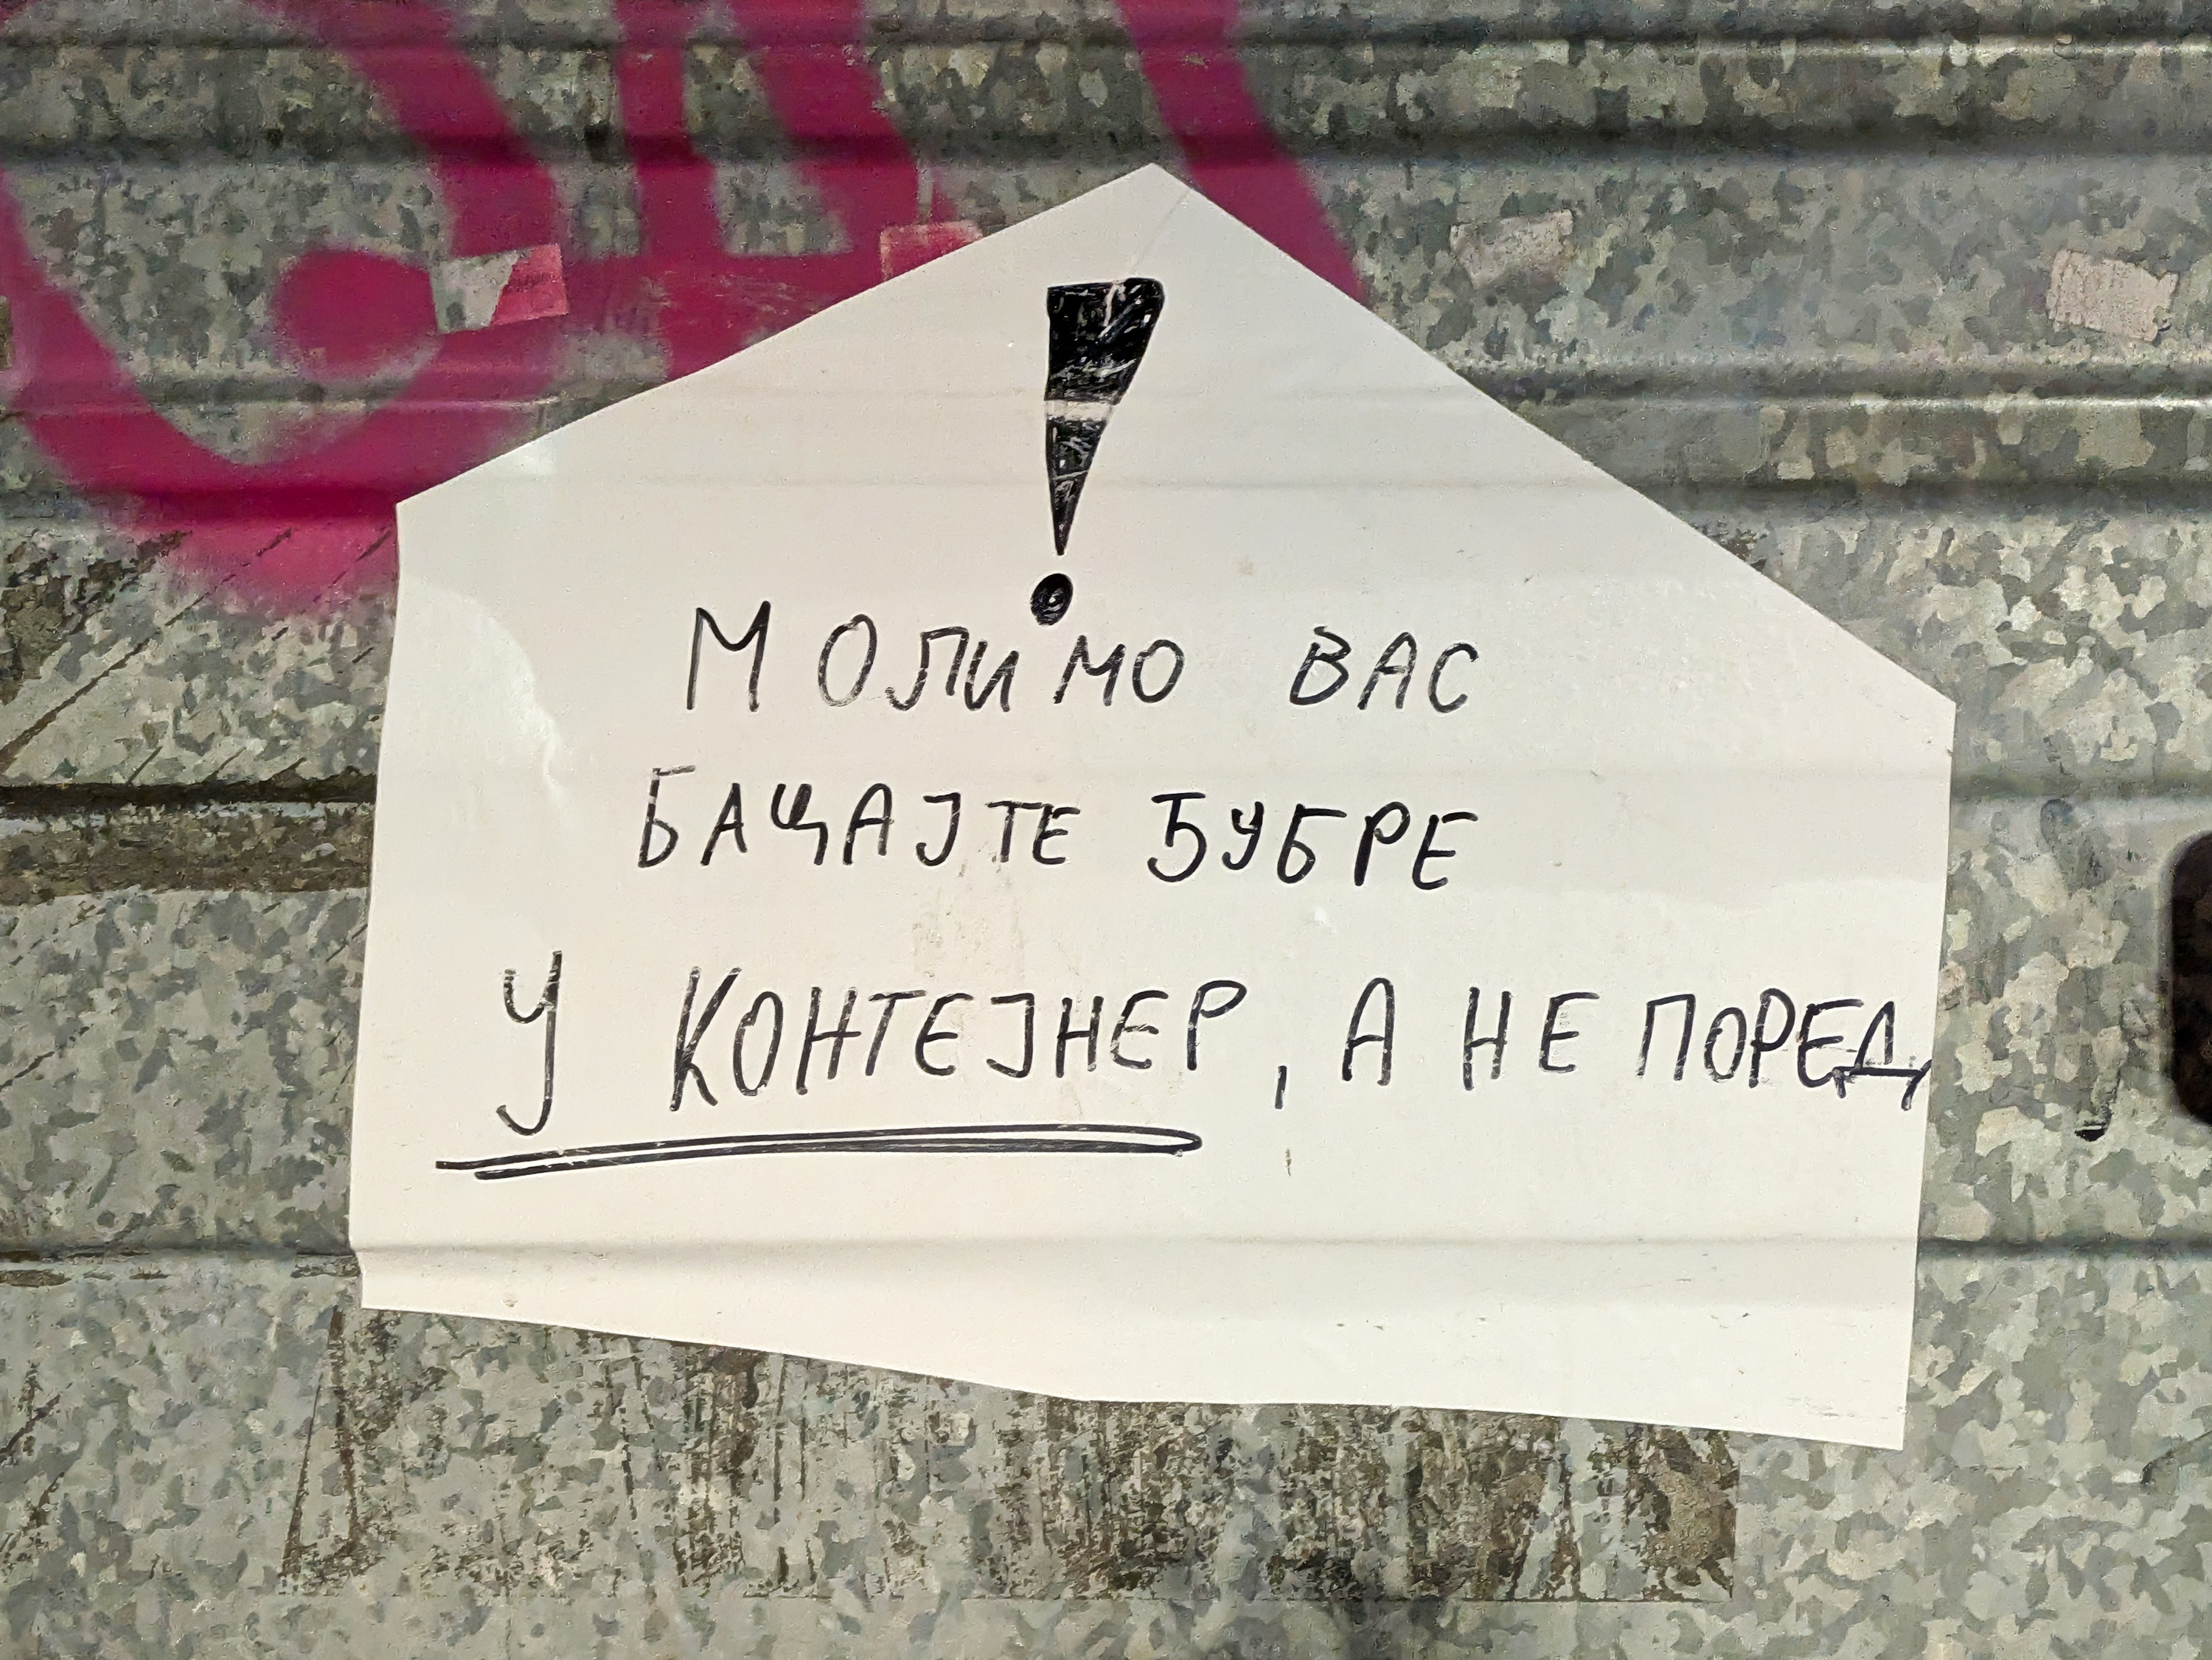 !
МОЛИМО ВАС
БАЦАЈТЕ ЂУБРЕ
У КОНТЕЈНЕР, А НЕ ПОРЕД